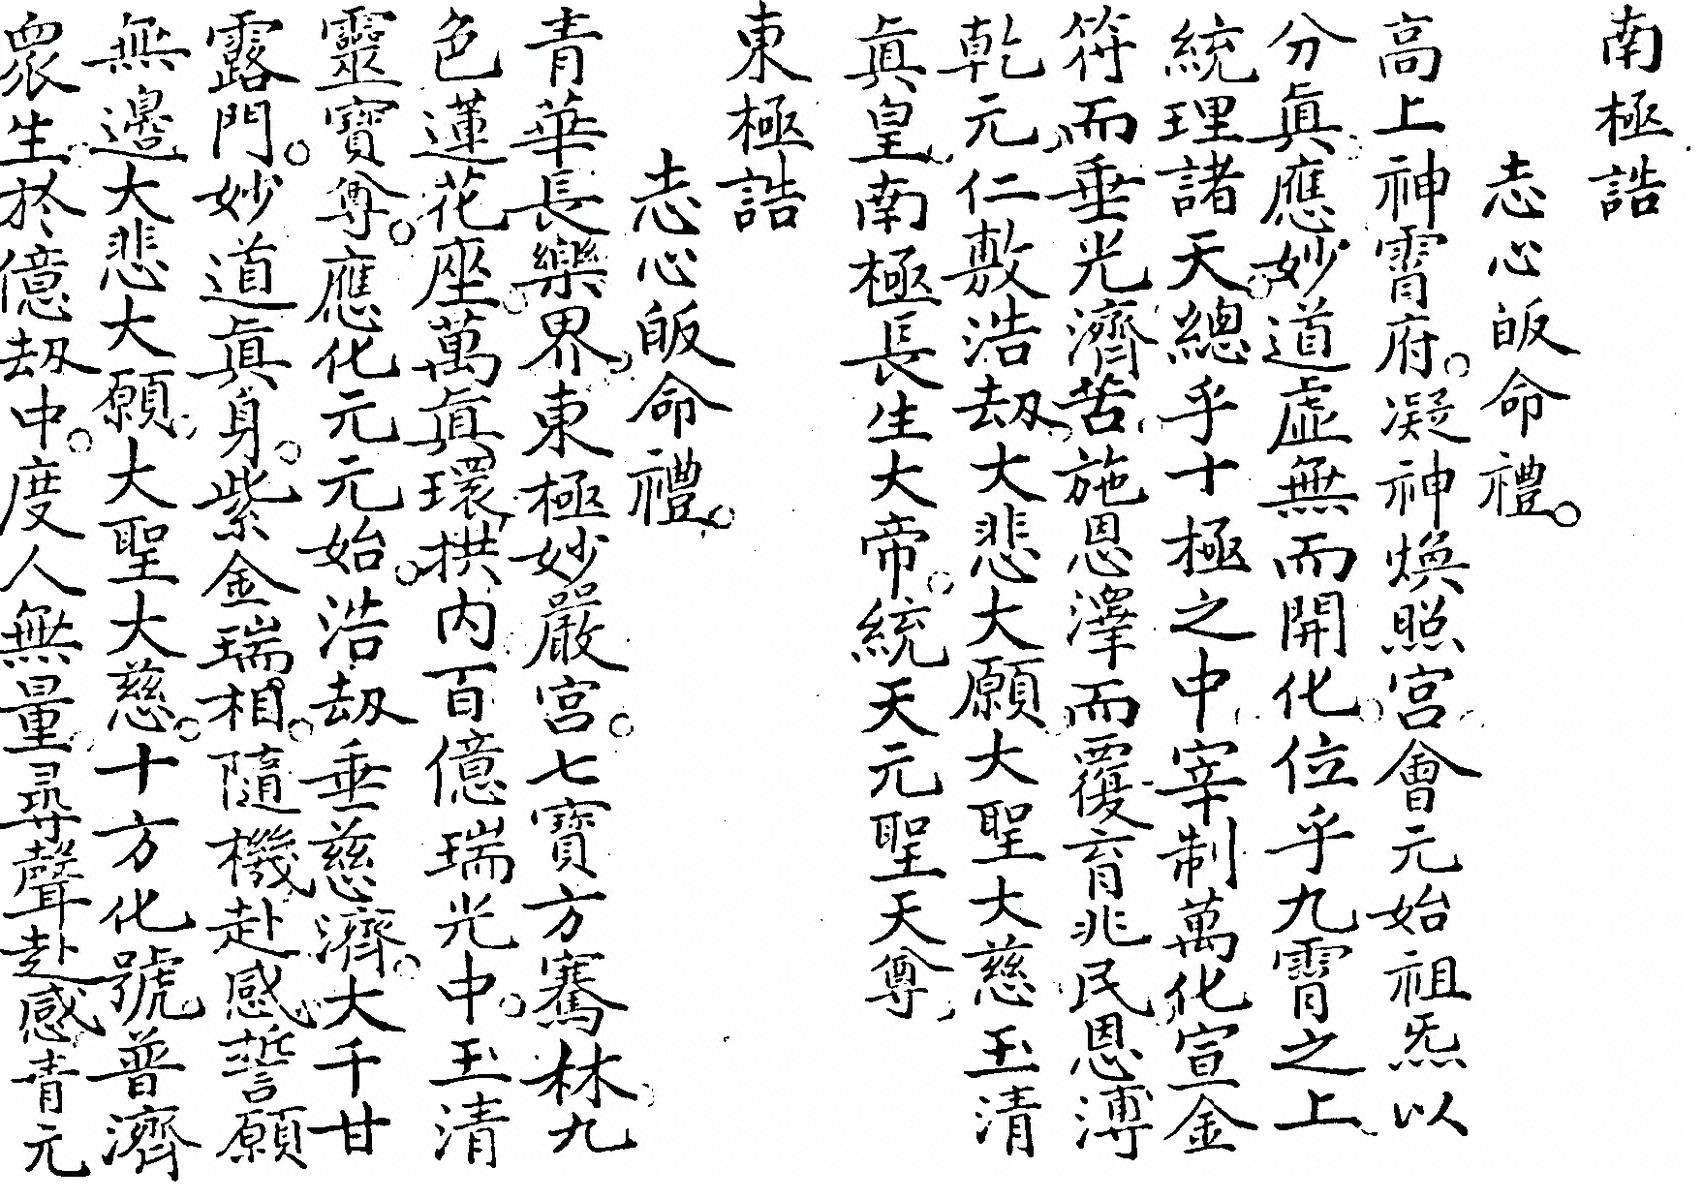 南極誥
志心皈命禮。
高上神霄府。凝神煥照宮會元始祖炁以
分眞應妙道虛無而開化位乎九霄之上
統理諸天。總乎十極之中宰制萬化宣金
符而垂光濟苦施恩澤而覆育兆民恩溥
乾元仁敷浩劫大悲大願大聖大慈玉清
眞皇南極長生大帝。統天元聖天尊
東極誥
志心皈命禮。
青華長樂界東極妙嚴宮。七寶方騫林九
色蓮花座。萬眞環拱內百億瑞光中。玉清
靈寶尊。應化元元始。浩劫垂慈濟。大千甘
露門。妙道眞身。紫金瑞相。隨機赴感誓願
無邊大悲大願大聖大慈。十方化號。普濟
眾生於億劫中。度人無量尋聲赴感青元